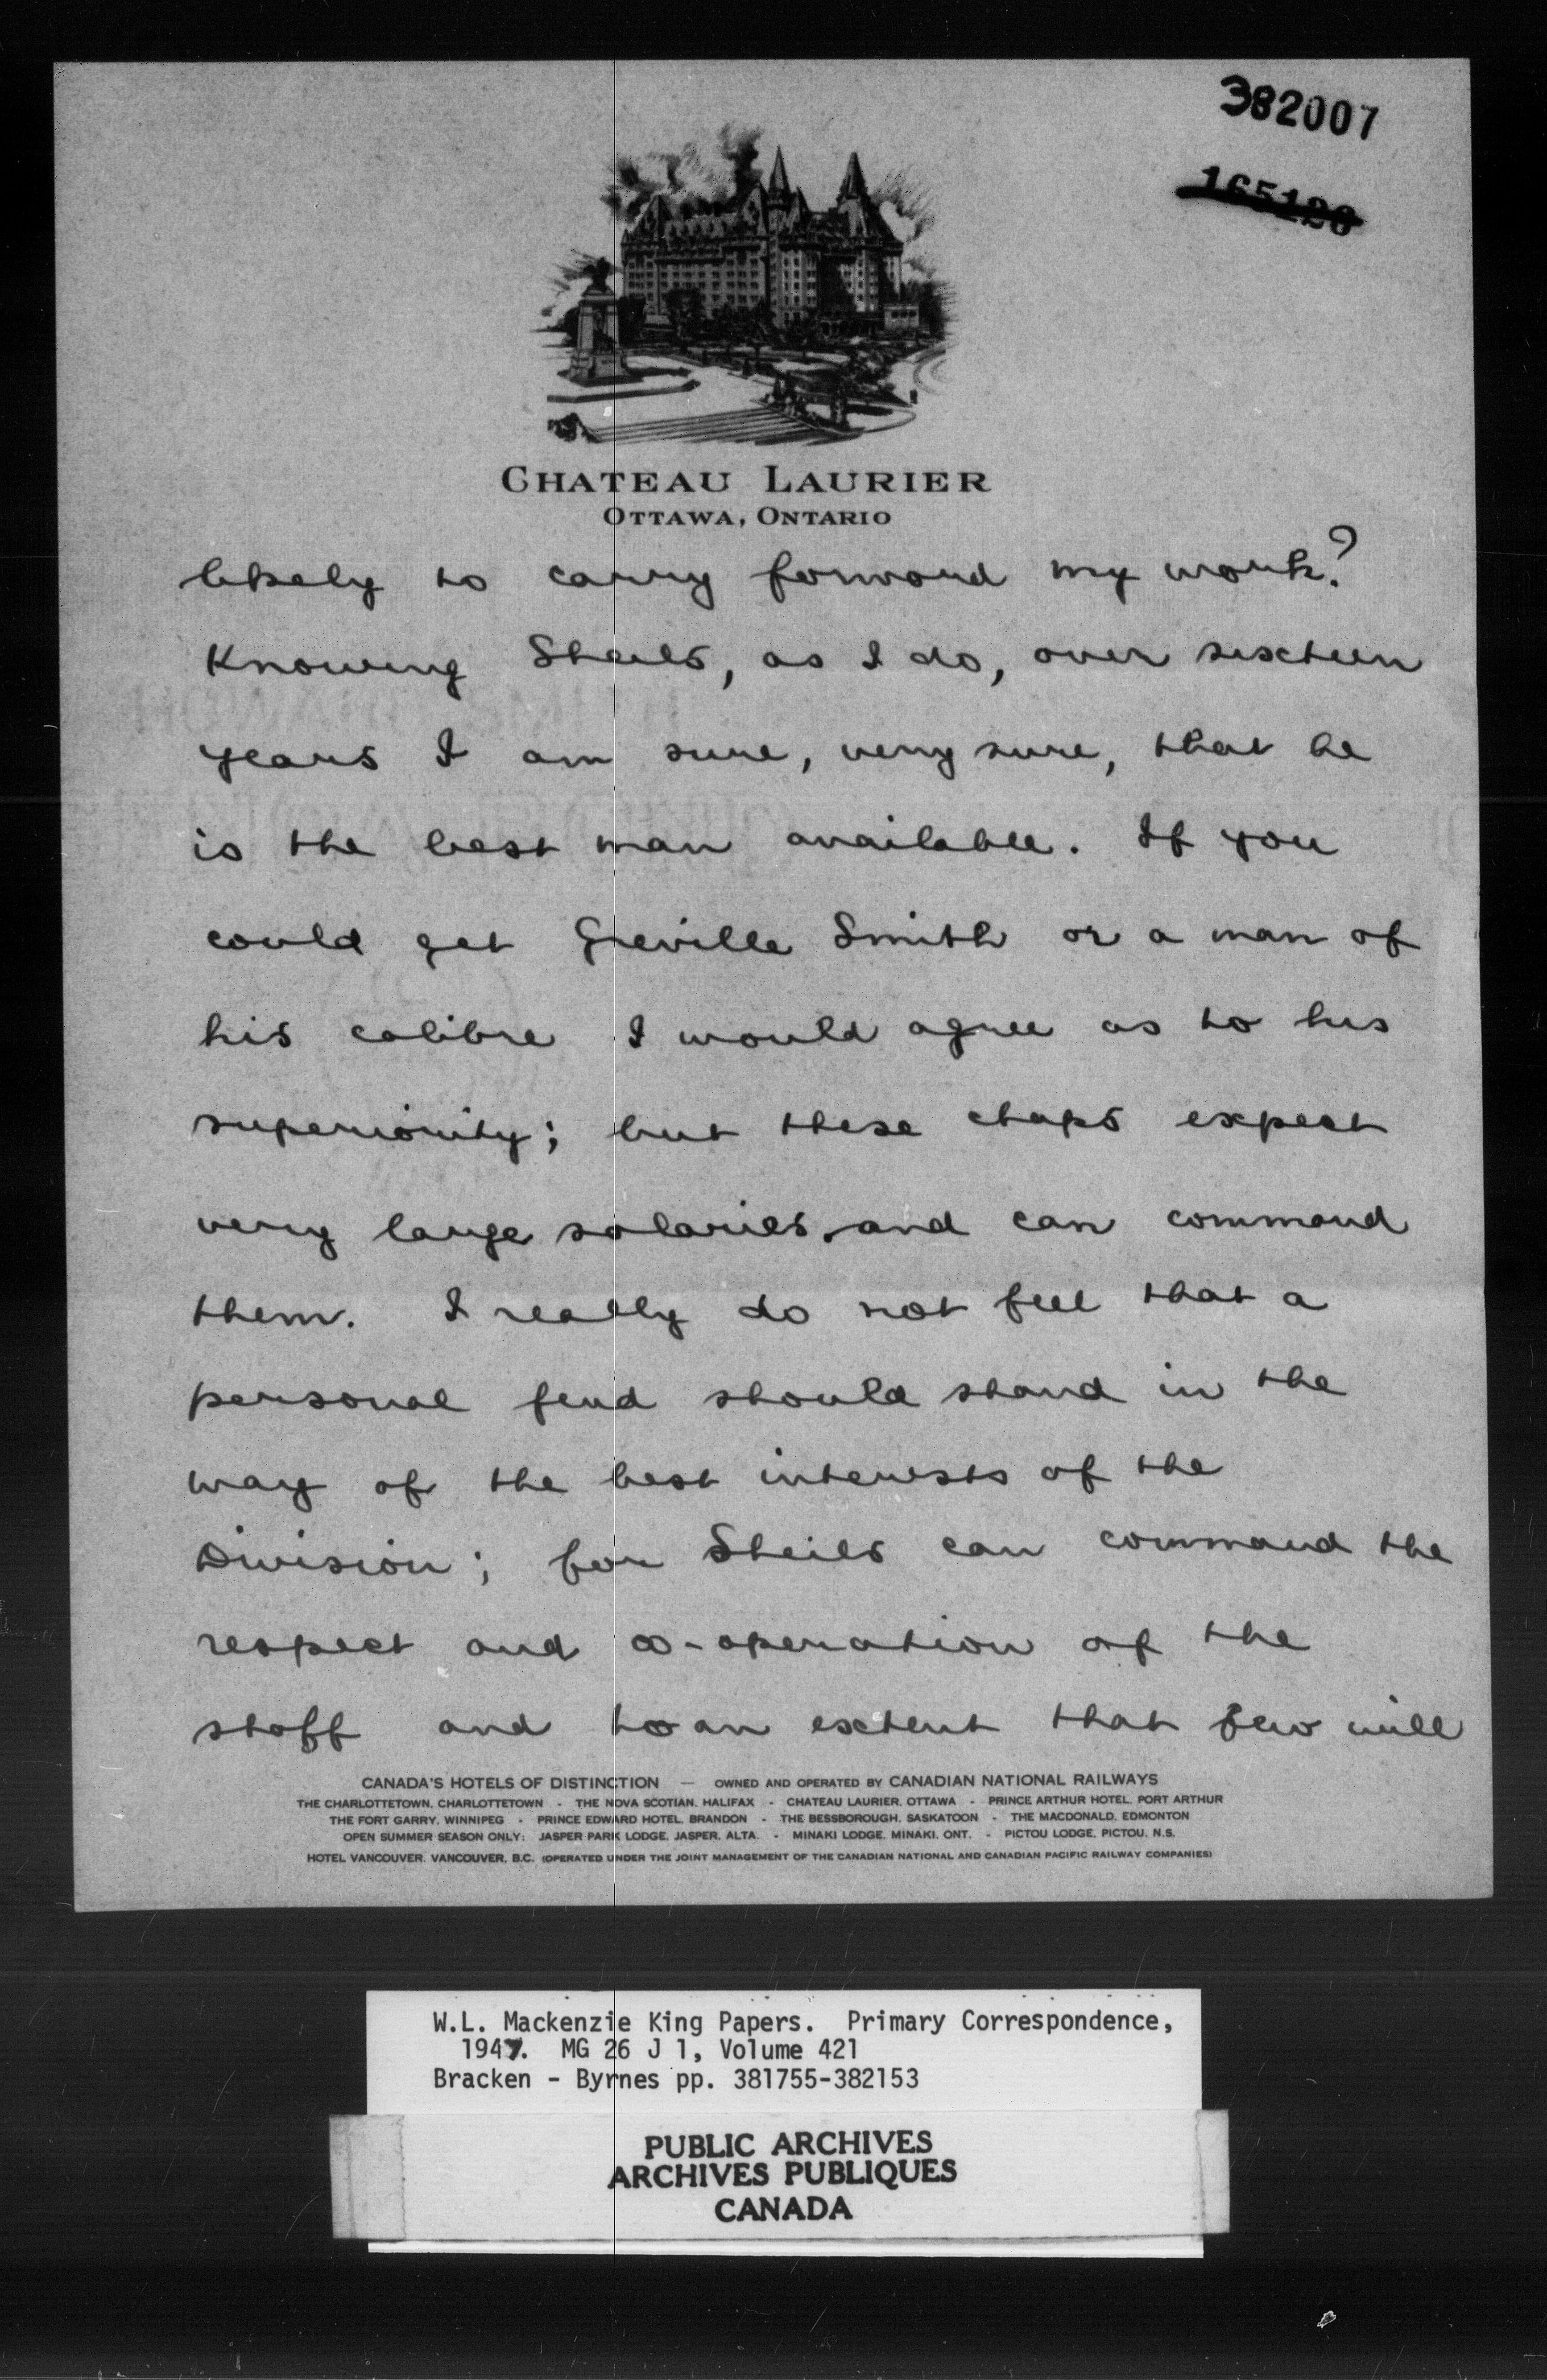 382007
CHATEAU LAURIER
OTTAWA, ONTARIO
likely to carry forward my work?
Knowing Sheils, as I do, over sixteen
years I am sure, very sure, that he
is the best man available. If you
could get Greville Smith or a man of
his calibre I would agree as to his
superiority; but these chaps expect
very large salaries and can command
them. I really do not feel that a
personal feud should stand in the
way of the best interests of the
Division; for Sheils can command the
respect and co-operation of the
staff and to an extent that few will
CANADA'S HOTELS OF DISTINCTION — OWNED AND OPERATED BY CANADIAN NATIONAL RAILWAYS
THE CHARLOTTETOWN, CHARLOTTETOWN - THE NOVA SCOTIAN, HALIFAX - CHATEAU LAURIER, OTTAWA - PRINCE ARTHUR HOTEL, PORT ARTHUR
THE FORT GARRY, WINNIPEG - PRINCE EDWARD HOTEL, BRANDON - THE BESSBOROUGH, SASKATOON - THE MACDONALD, EDMONTON
OPEN SUMMER SEASON ONLY: JASPER PARK LODGE, JASPER, ALTA. - MINAKI LODGE, MINAKI, ONT. - PICTOU LODGE, PICTOU, N.S.
HOTEL VANCOUVER, VANCOUVER, B.C. (OPERATED UNDER THE JOINT MANAGEMENT OF THE CANADIAN NATIONAL AND CANADIAN PACIFIC RAILWAY COMPANIES)
W.L. Mackenzie King Papers. Primary Correspondence,
1947. MG 26 J 1, Volume 421
Bracken - Byrnes pp. 381755-382153
PUBLIC ARCHIVES
ARCHIVES PUBLIQUES
CANADA